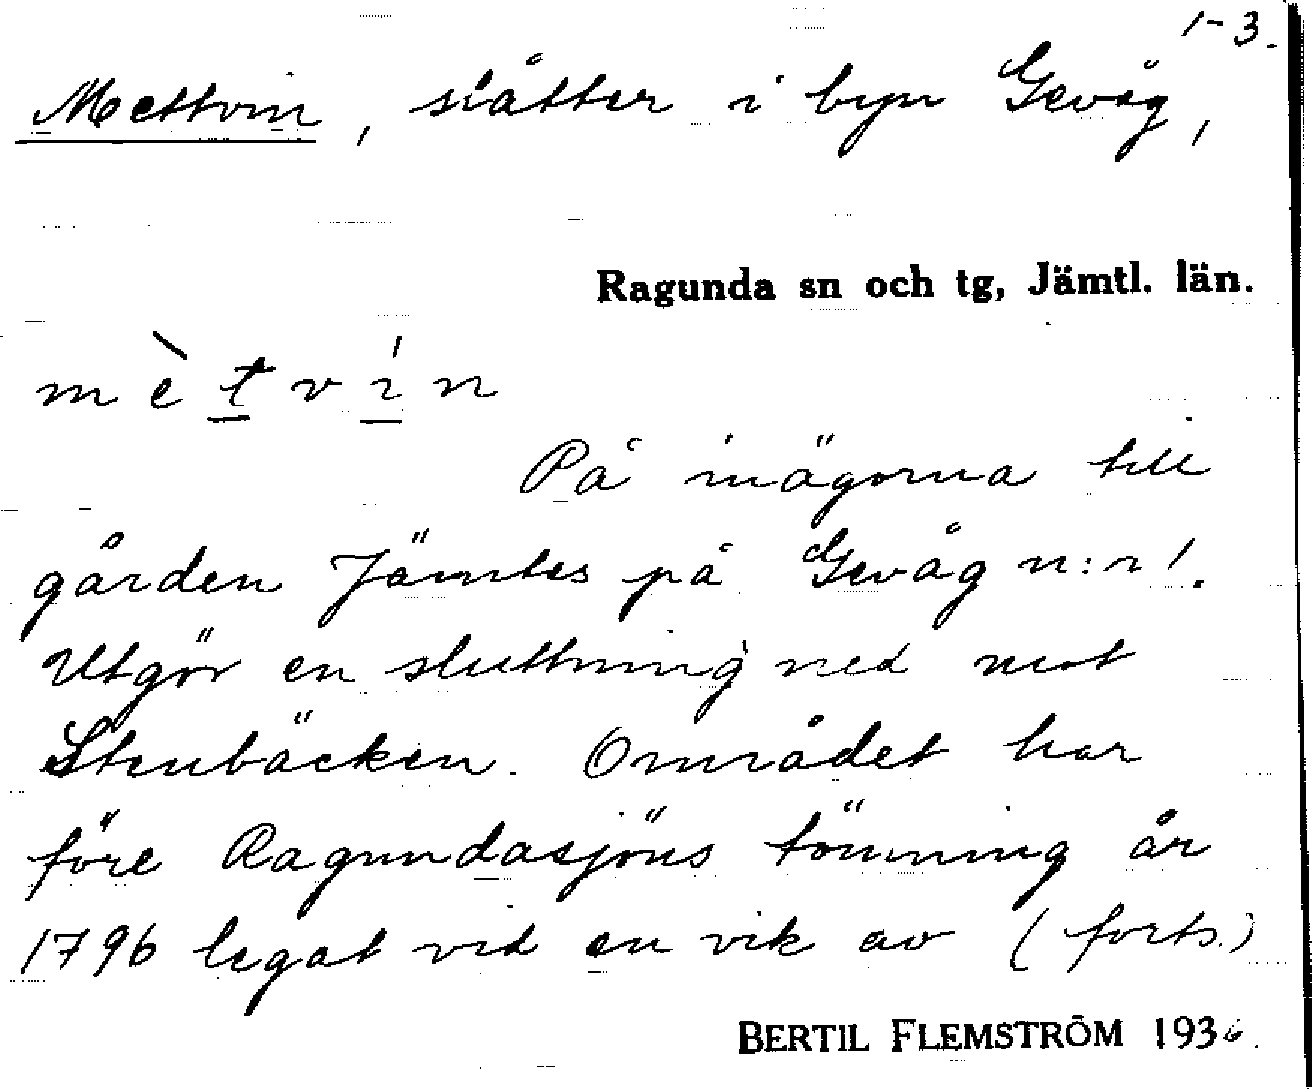 1-3.
Mettvin, slåtter i byn Gevåg,
Ragunda sn och tg, Jämtl. län.
mètvín
På inägorna till
gården Jämtes på Gevåg n:r 1.
Utgör en sluttning ned mot
Stenbäcken. Området har
före Ragundasjöns tömning år
1796 legat vid en vik av (forts.)
BERTIL FLEMSTRÖM 1936.